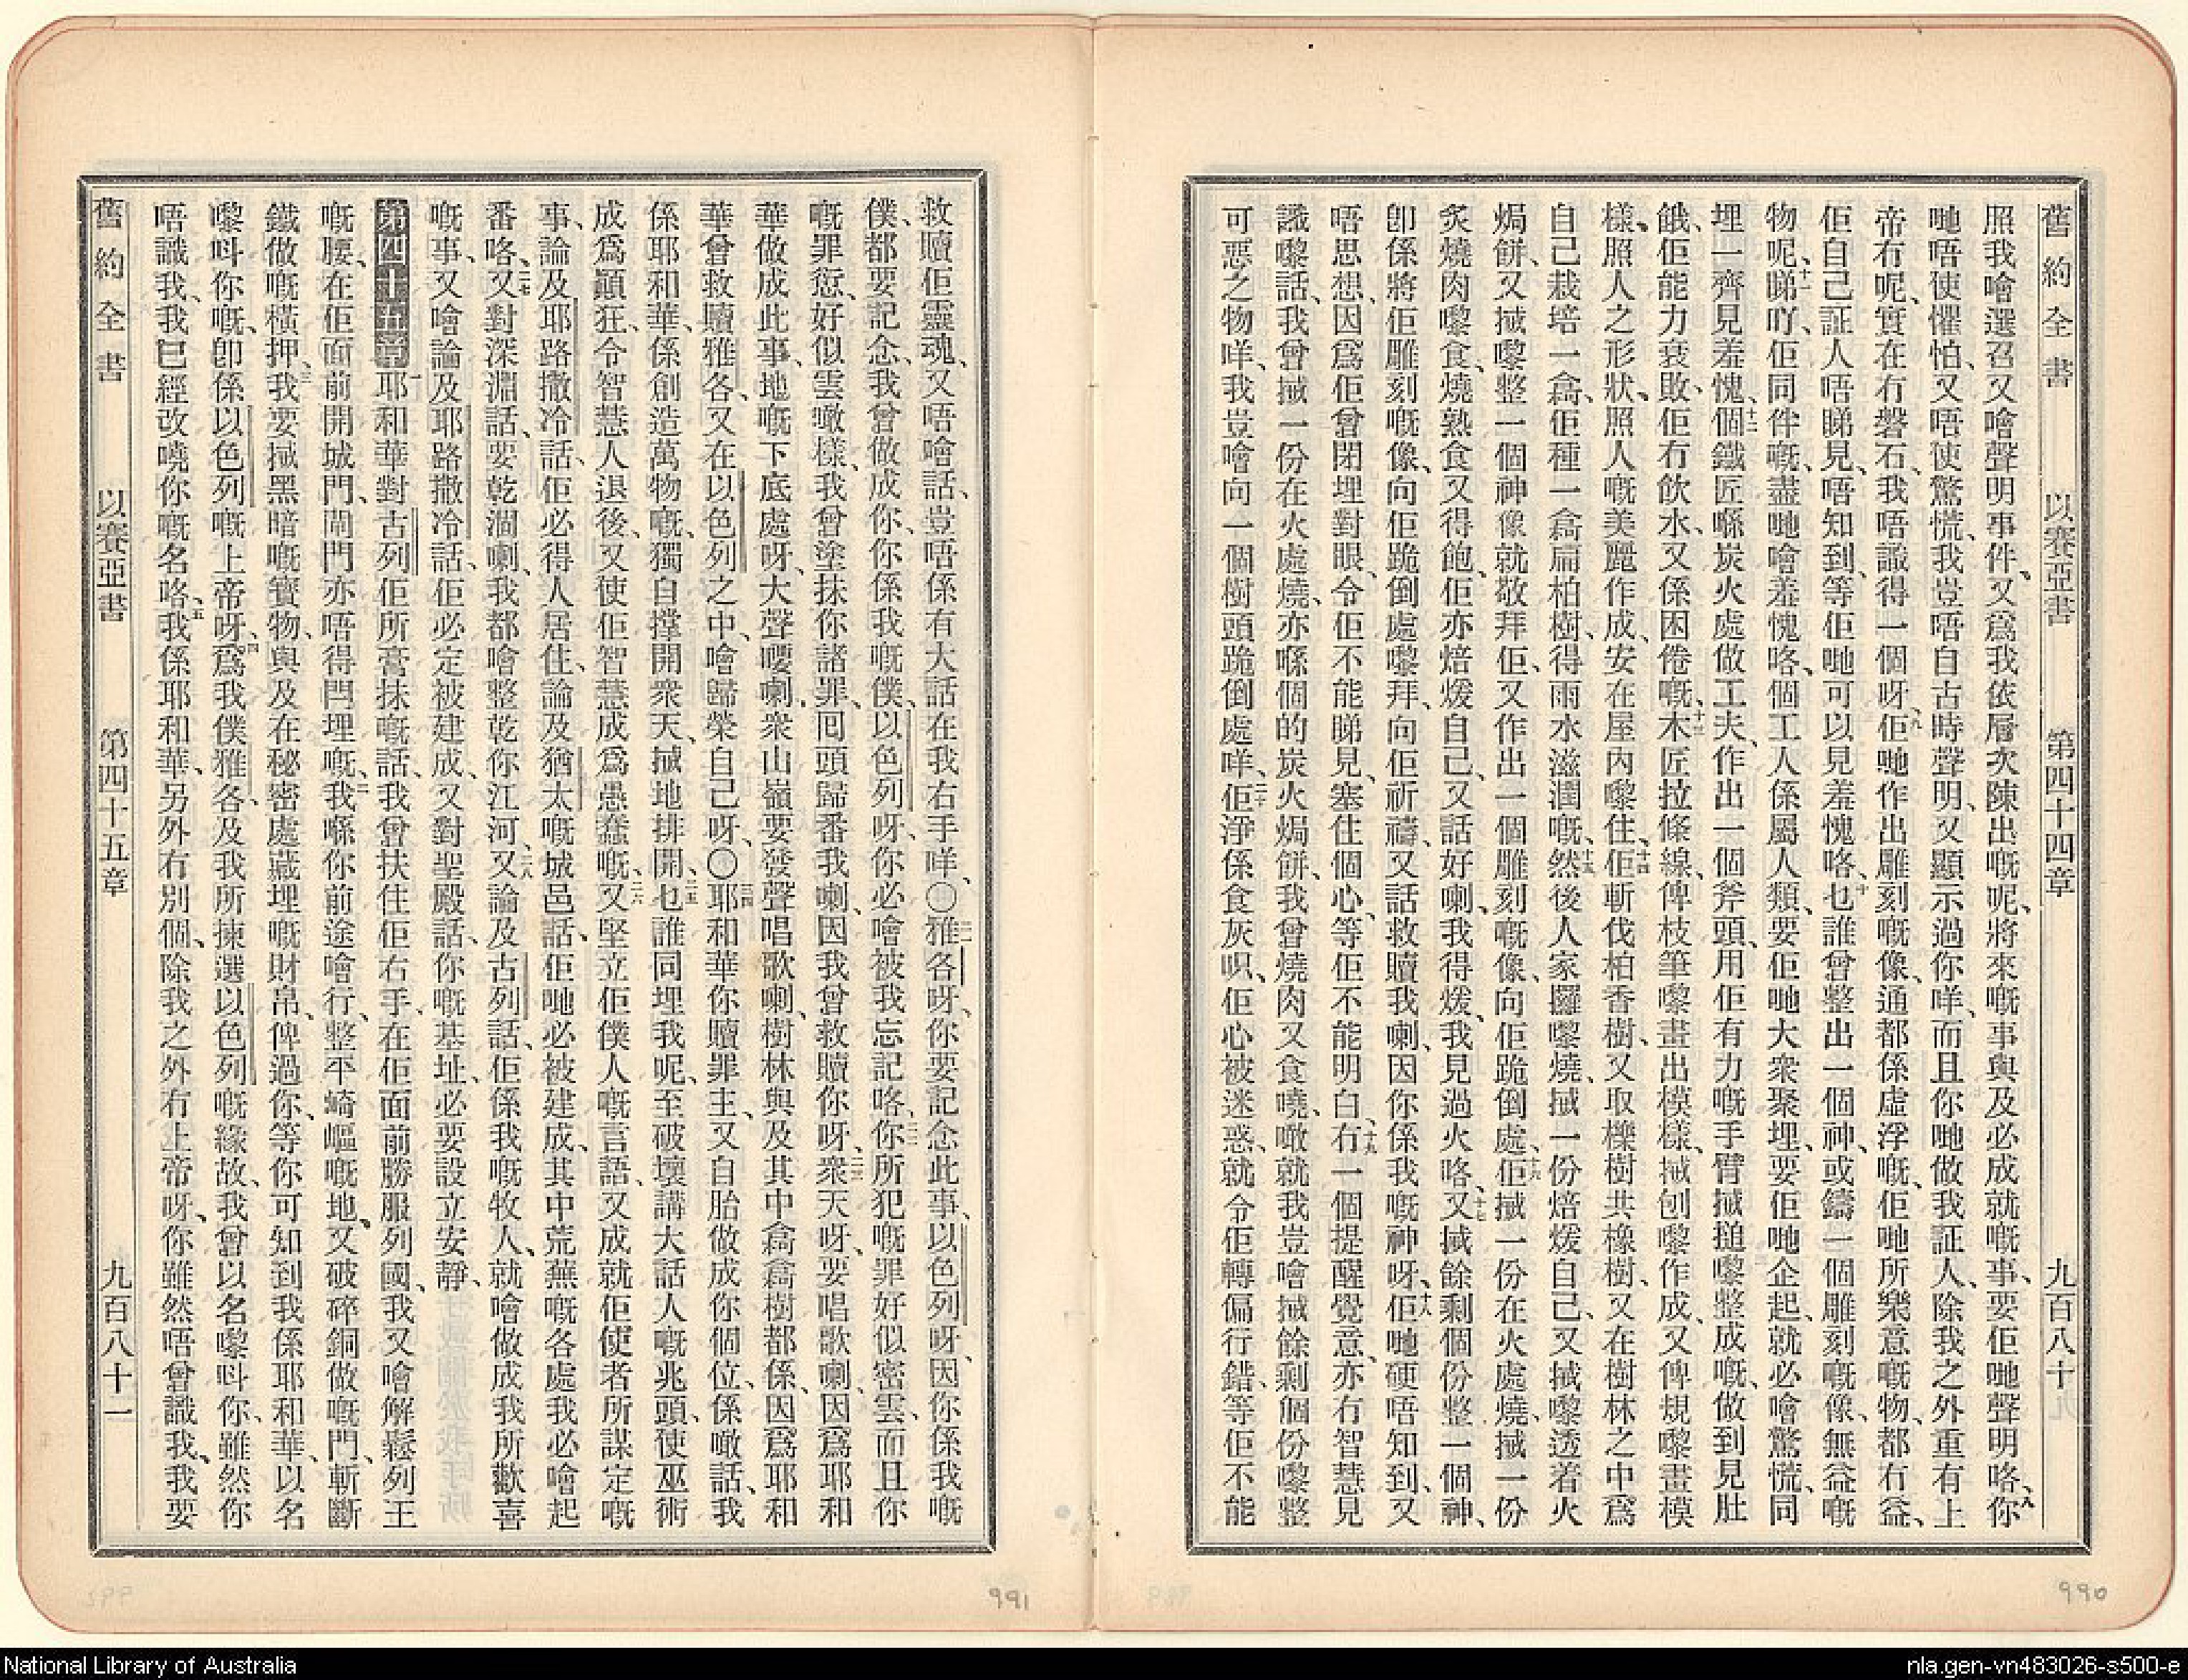 舊約全書 以賽亞書 第四十四章 九百八十
照我噲選召又噲聲明事件、又爲我依層次陳出嘅呢、將來嘅事與及必成就嘅事、要佢哋聲明咯、八你
哋唔使懼怕、又唔使驚慌、我豈唔自古時聲明、又顯示過你咩、而且你哋做我証人、除我之外重有上
帝冇呢、實在冇磐石、我唔識得一個呀、九佢哋作出雕刻嘅像、通都係虛浮嘅、佢哋所樂意嘅物、都冇益、
佢自己証人唔睇見、唔知到、等佢哋可以見羞愧咯、十乜誰曾整出一個神、或鑄一個雕刻嘅像、無益嘅
物呢、十一睇吖、佢同伴嘅、盡哋噲羞愧咯、個工人係屬人類、要佢哋大衆聚埋、要佢哋企起、就必噲驚慌、同
埋一齊見羞愧、十二個鐵匠喺炭火處做工夫、作出一個斧頭、用佢有力嘅手臂搣搥嚟整成嘅、做到見肚
餓、佢能力衰敗、佢冇飲水、又係困倦嘅、十三木匠拉條線、俾枝筆嚟畫出模樣、搣刨嚟作成、又俾規嚟畫模
樣、照人之形狀、照人嘅美麗作成、安在屋內嚟住、十四佢斬伐柏香樹、又取櫟樹共橡樹、又在樹林之中爲
自己栽培一喬、佢種一喬扁柏樹、得雨水滋潤嘅、十五然後人家攞嚟燒、搣一份焙煖自己、又搣嚟透着火
焗餅、又搣嚟整一個神像就敬拜佢、又作出一個雕刻嘅像、向佢跪倒處、十六佢搣一份在火處燒、搣一份
炙燒肉嚟食、燒熟食又得飽、佢亦焙煖自己、又話好喇、我得煖、我見過火咯、十七又搣餘剩個份整一個神、
卽係將佢雕刻嘅像、向佢跪倒處嚟拜、向佢祈禱、又話救贖我喇、因你係我嘅神呀、十八佢哋硬唔知到、又
唔思想、因爲佢曾閉埋對眼、令佢不能睇見、塞住個心、等佢不能明白、十九冇一個提醒覺意、亦冇智慧見
識嚟話、我曾搣一份在火處燒、亦喺個的炭火焗餅、我曾燒肉又食嘵、噉就我豈噲搣餘剩個份嚟整
可惡之物咩、我豈噲向一個樹頭跪倒處咩、二十佢淨係食灰呮、佢心被迷惑、就令佢轉偏行錯、等佢不能
救贖佢靈魂、又唔噲話、豈唔係有大話在我右手咩、○二一雅各呀、你要記念此事、以色列呀、因你係我嘅
僕、都要記念、我曾做成你、你係我嘅僕、以色列呀、你必噲被我忘記咯、二二你所犯嘅罪好似密雲、而且你
嘅罪愆、好似雲噉樣、我曾塗抹你諸罪、囘頭歸番我喇、因我曾救贖你呀、二三衆天呀、要唱歌喇、因爲耶和
華做成此事、地嘅下底處呀、大聲嘤喇、衆山嶺要發聲唱歌喇、樹林與及其中喬喬樹都係、因爲耶和
華曾救贖雅各、又在以色列之中、噲歸榮自己呀、○二四耶和華你贖罪主、又自胎做成你個位、係噉話、我
係耶和華、係創造萬物嘅、獨自撑開衆天、搣地排開、二五乜誰同埋我呢、至破壞講大話人嘅兆頭、使巫術
成爲顚狂、令智慧人退後、又使佢智慧成爲愚蠢嘅、二六又堅立佢僕人嘅言語、又成就佢使者所謀定嘅
事、論及耶路撒冷話、佢必得人居住、論及猶太嘅城邑話、佢哋必被建成、其中荒蕪嘅各處我必噲起
番咯、二七又對深淵話、要乾涸喇、我都噲整乾你江河、二八又論及古列話、佢係我嘅牧人、就噲做成我所歡喜
嘅事、又噲論及耶路撒冷話、佢必定被建成、又對聖殿話、你嘅基址、必要設立安靜、
第四十五章 一耶和華對古列佢所膏抹嘅話、我曾扶住佢右手、在佢面前勝服列國、我又噲解鬆列王
嘅腰、在佢面前開城門、閘門亦唔得閂埋嘅、二我喺你前途噲行、整平崎嶇嘅地、又破碎銅做嘅門、斬斷
鐵做嘅橫押、三我要搣黑暗嘅寳物、與及在秘密處嚴埋嘅財帛、俾過你、等你可知到我係耶和華、以名
嚟呌你嘅、卽係以色列嘅上帝呀、四爲我僕雅各、及我所揀選以色列嘅緣故、我曾以名嚟呌你、雖然你
唔識我、我已經改嘵你嘅名咯、五我係耶和華、另外冇別個、除我之外冇上帝呀、你雖然唔曾識我、我要
舊約全書 以賽亞書 第四十五章 九百八十一
990
991
National Library of Australia
nla.gen-vn483026-s500-e